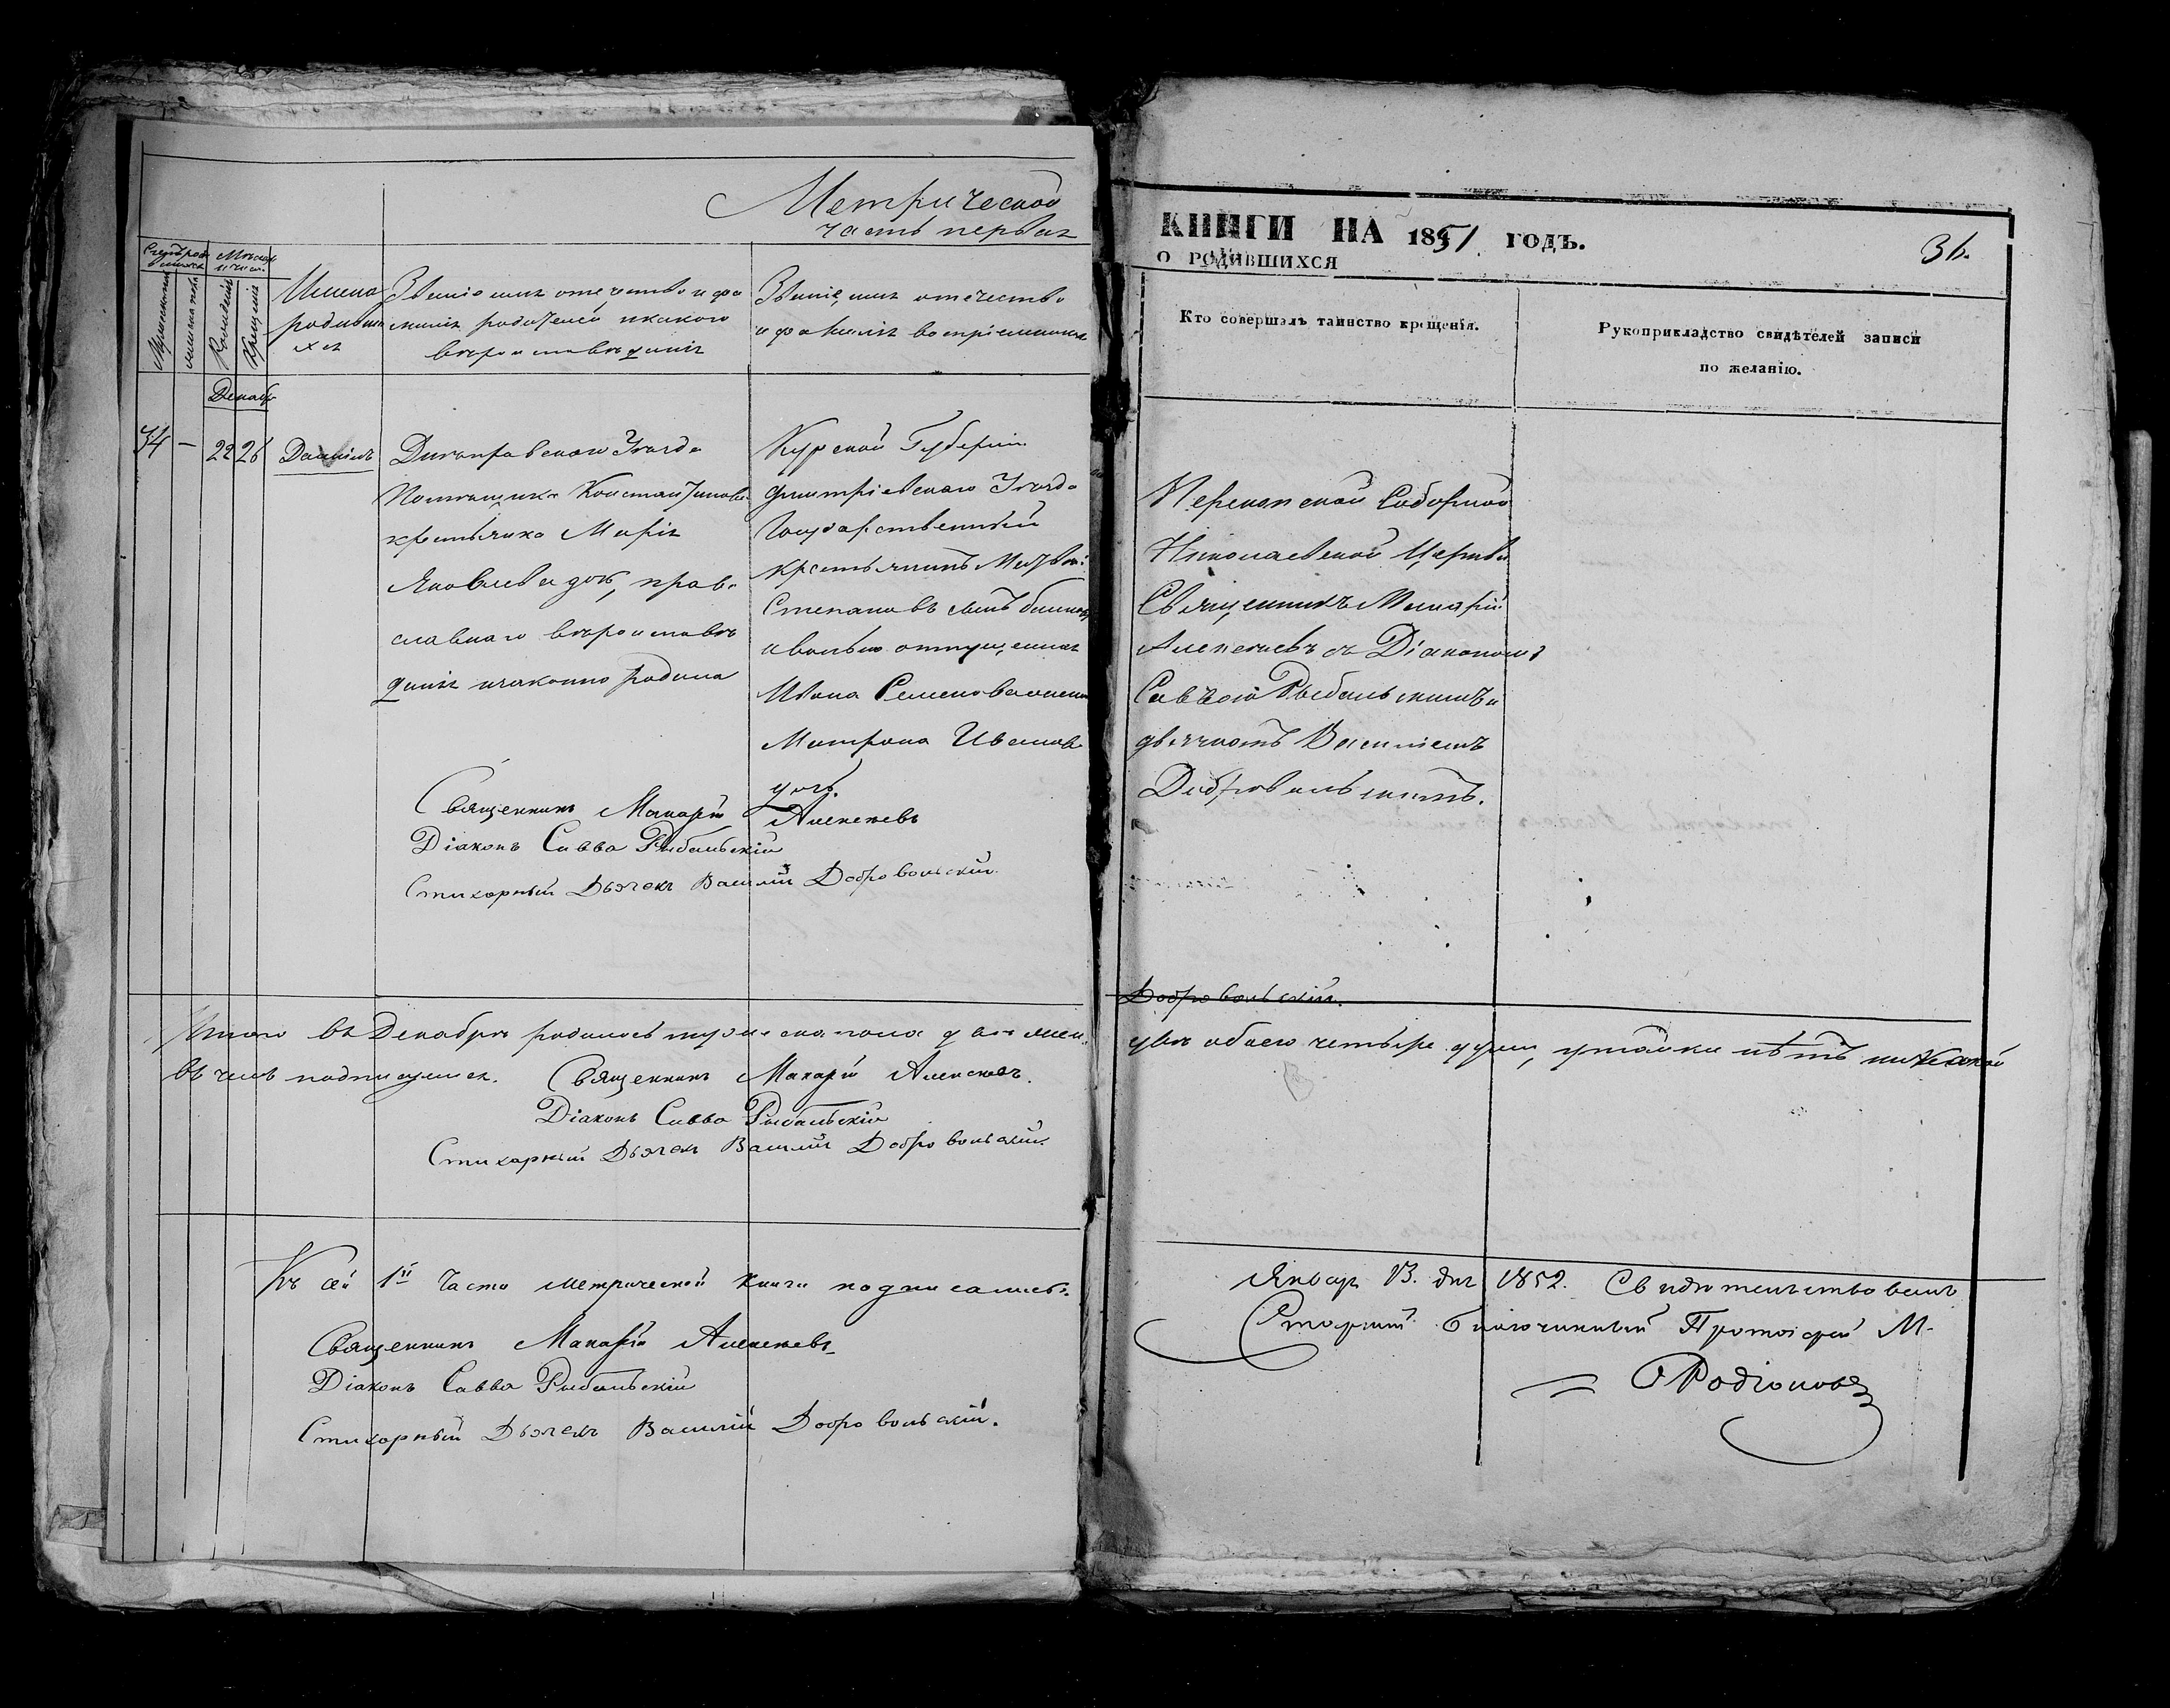 Метрической
часть первая
КНИГИ НА 1851. ГОДЪ.
О РОДИВШИХСЯ
36.
Счетъ род
Мѣсяц
и число.
Мужескаго
женскаго
Рожденія
Крещенія
Имена
родивши
хся
Званіе имя отечество и фа
милія родителей и какого
вѣроисповѣданія
Званіе, имя отечество
и фамилія воспріемниковъ
Кто совершалъ таинство крещенія.
Рукоприкладство свидѣтелей записи
по желанію.
Декабр
34
—
22
26
Даніилъ
Днепровскаго Уѣзда
Помѣщика Константинова
крестьянка Марія
Яковлева дочь, право
славнаго вѣроисповѣ
данія незаконно родила
Курской Губерніи
Дмитріевскаго Уѣзда
Государственный
крестьянинъ
Степановъ сынъ
и вольно отпущенная
Ивана
Матрона Иванова
дочь.
Перекопской Соборной
Николаевской Церкви
Священникъ Макарій
Алексеевъ съ Діакономъ
Саввою Рыбальскимъ и
дьячкомъ Василіемъ
Добровольскимъ.
Священникъ Макарій Алексеевъ
Діаконъ Савва Рыбальскій
Стихарный Дьячекъ Василій Добровольскій.
Добровольскій.
Итого въ Декабрѣ родилось мужеска пола два женска
два обоего четыре души, утайки нѣтъ никакой
въ чемъ подпишемся. Священникъ Макарій Алексеевъ.
Діаконъ Савва Рыбальскій
Стихарный Дьячекъ Василій Добровольскій.
Къ сей 1й Части метрической книги подписались.
Священникъ Макарій Алексеевъ
Діаконъ Савва Рыбальскій
Стихарный Дьячекъ Василій Добровольскій.
Январ 13. дня 1852. Свидѣтельствовалъ
Старшій благочинный Протоіерей М.
Родіоновъ